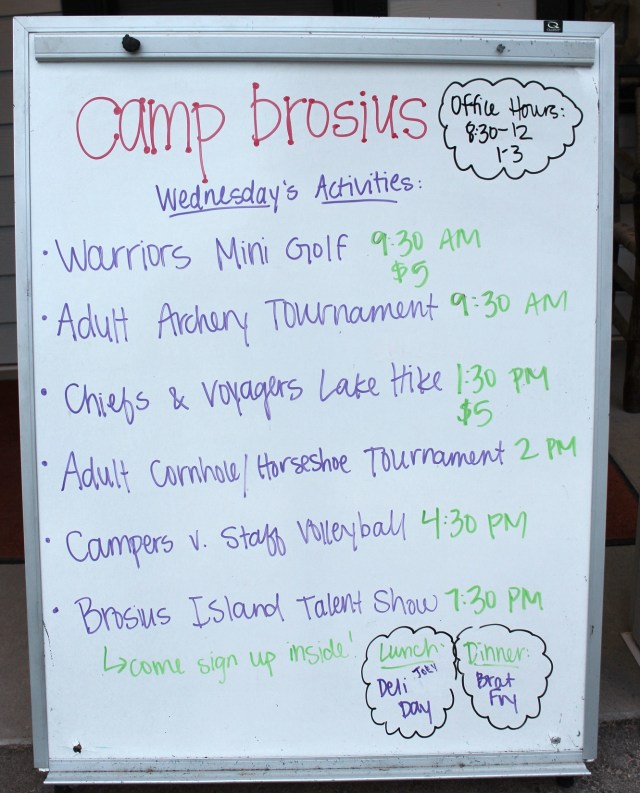 Camp Brosius
Office Hours:
8:30-12
1-3
Wednesday's Activities:
• Warriors Mini Golf 9:30 AM
$5
• Adult Archery Tournament 9:30 AM
• Chiefs & Voyagers Lake Hike 1:30 PM
$5
• Adult Cornhole/Horseshoe Tournament 2 PM
• Campers v. Staff Volleyball 4:30 PM
• Brosius Island Talent Show 7:30 PM
↳ come sign up inside!
Lunch:
Deli
Day
Dinner:
Brat
Fry